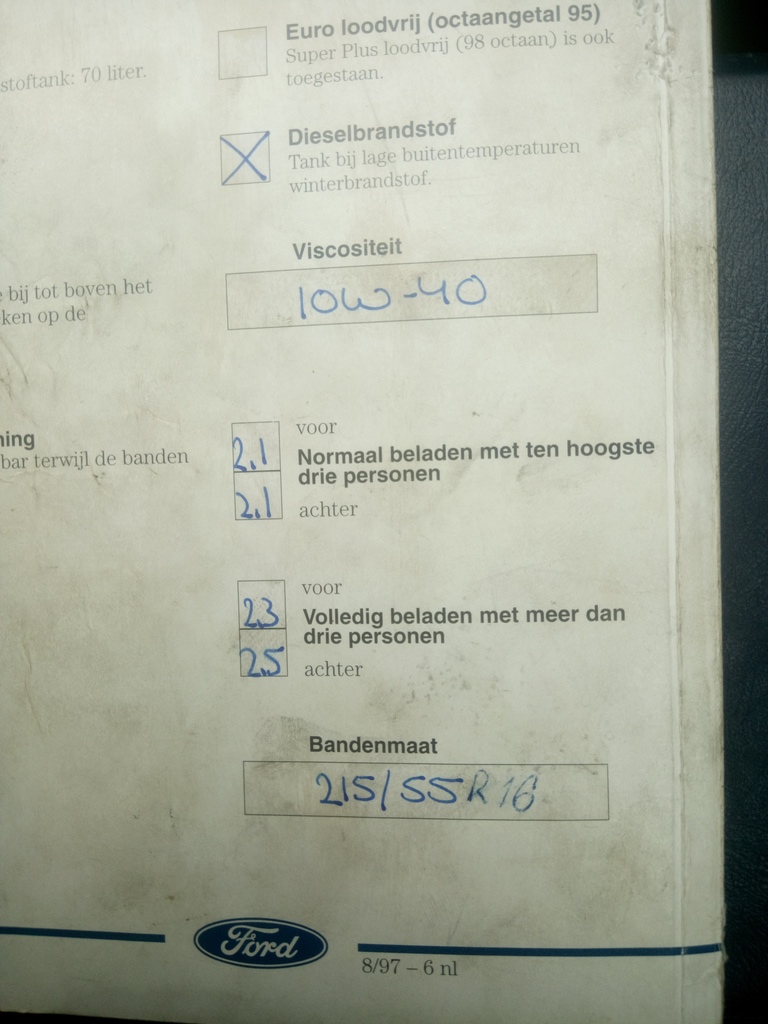 Euro loodvrij (octaangetal 95)
Super Plus loodvrij (98 octaan) is ook
toegestaan.
stoftank: 70 liter.
Dieselbrandstof
Tank bij lage buitentemperaturen
winterbrandstof.
Viscositeit
10W-40
bij tot boven het
ken op de
voor
2,1
Normaal beladen met ten hoogste
drie personen
2,1
achter
ning
bar terwijl de banden
voor
2,3
Volledig beladen met meer dan
drie personen
2,5
achter
Bandenmaat
215/55R16
Ford
8/97 – 6 nl